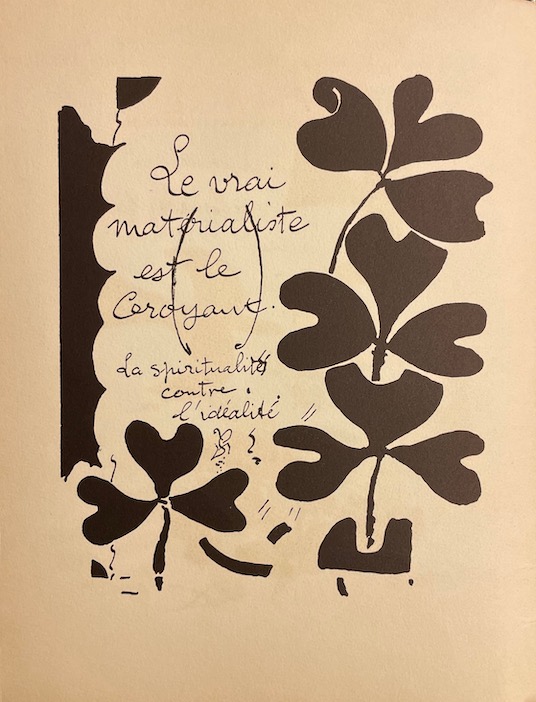 Le vrai
matérialiste
est le
Croyant.
La spiritualité
contre
l'idéalité